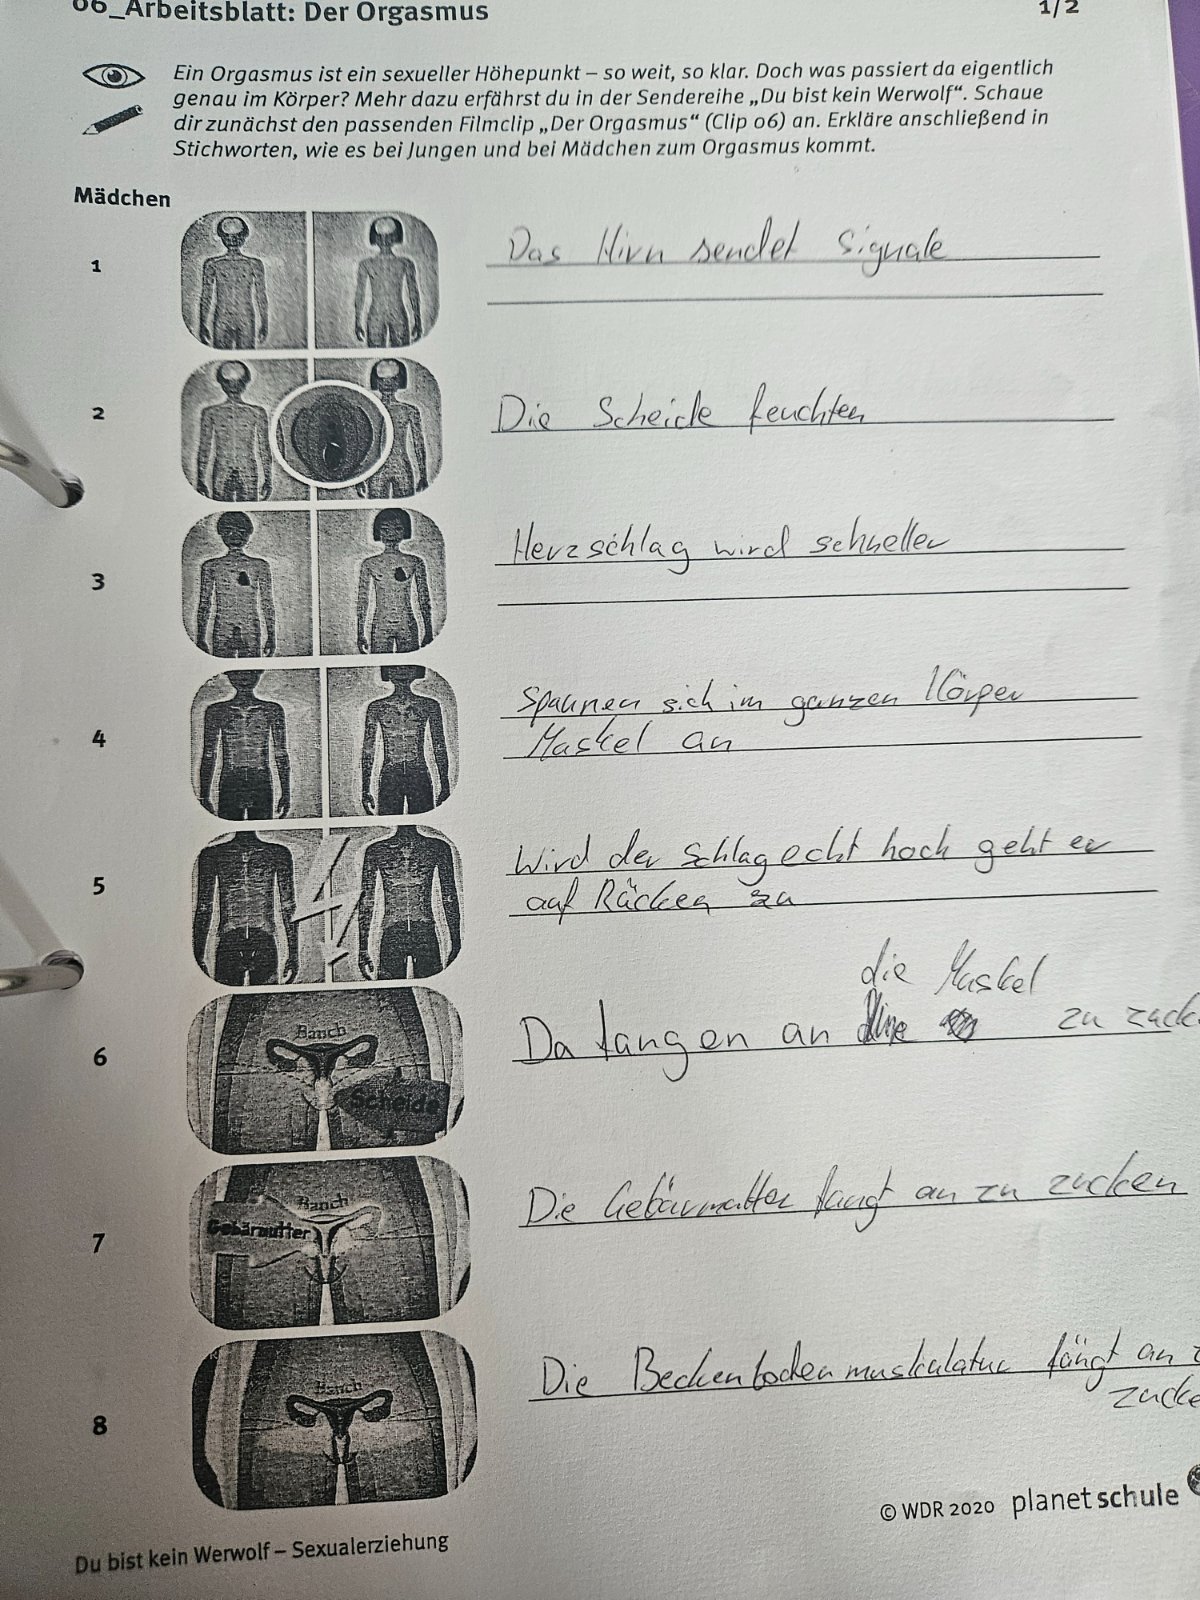 06_Arbeitsblatt: Der Orgasmus
1/2
Ein Orgasmus ist ein sexueller Höhepunkt – so weit, so klar. Doch was passiert da eigentlich
genau im Körper? Mehr dazu erfährst du in der Sendereihe „Du bist kein Werwolf“. Schaue
dir zunächst den passenden Filmclip „Der Orgasmus“ (Clip 06) an. Erkläre anschließend in
Stichworten, wie es bei Jungen und bei Mädchen zum Orgasmus kommt.
Mädchen
1
Das Hirn sendet Signale
2
Die Scheide feuchten
3
Herzschlag wird schneller
4
Spannen sich im ganzen Körper
Muskel an
5
Wird der Schlag echt hoch geht er
auf Rücken zu
6
Bauch
Scheide
die Muskel
Da fangen an zu zuck
7
Bauch
Gebärmutter
Die Gebärmutter fangt an zu zucken
8
Bauch
Die Beckenbodenmuskulatur fängt an z
zucke
© WDR 2020 planet schule
Du bist kein Werwolf – Sexualerziehung